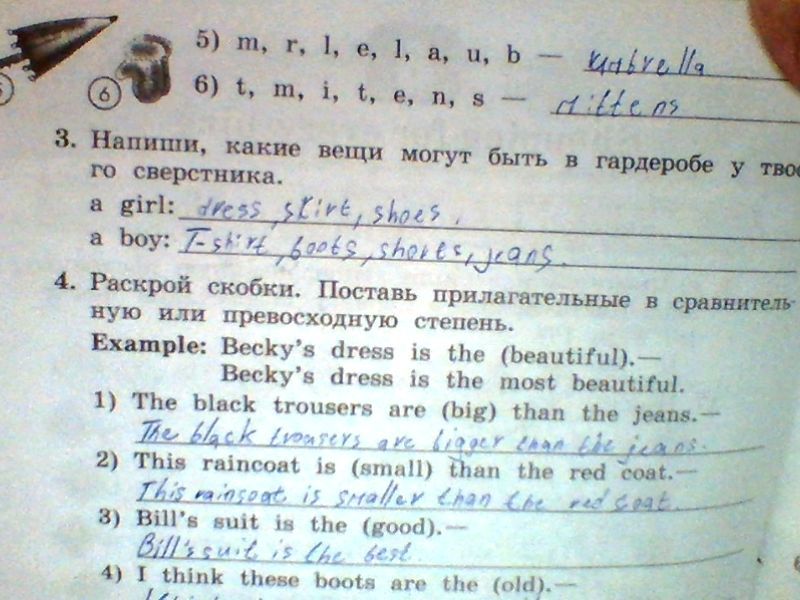 5) m, r, l, e, l, a, u, b — umbrella
6
6) t, m, i, t, e, n, s — mittens
3. Напиши, какие вещи могут быть в гардеробе у твое
го сверстника.
a girl: dress, skirt, shoes.
a boy: T-shirt, boots, shorts, jeans.
4. Раскрой скобки. Поставь прилагательные в сравнитель-
ную или превосходную степень.
Example: Becky's dress is the (beautiful).—
Becky's dress is the most beautiful.
1) The black trousers are (big) than the jeans.—
The black trousers are bigger than the jeans.
2) This raincoat is (small) than the red coat.—
This raincoat is smaller than the red coat.
3) Bill's suit is the (good).—
Bill's suit is the best.
4) I think these boots are the (old).—